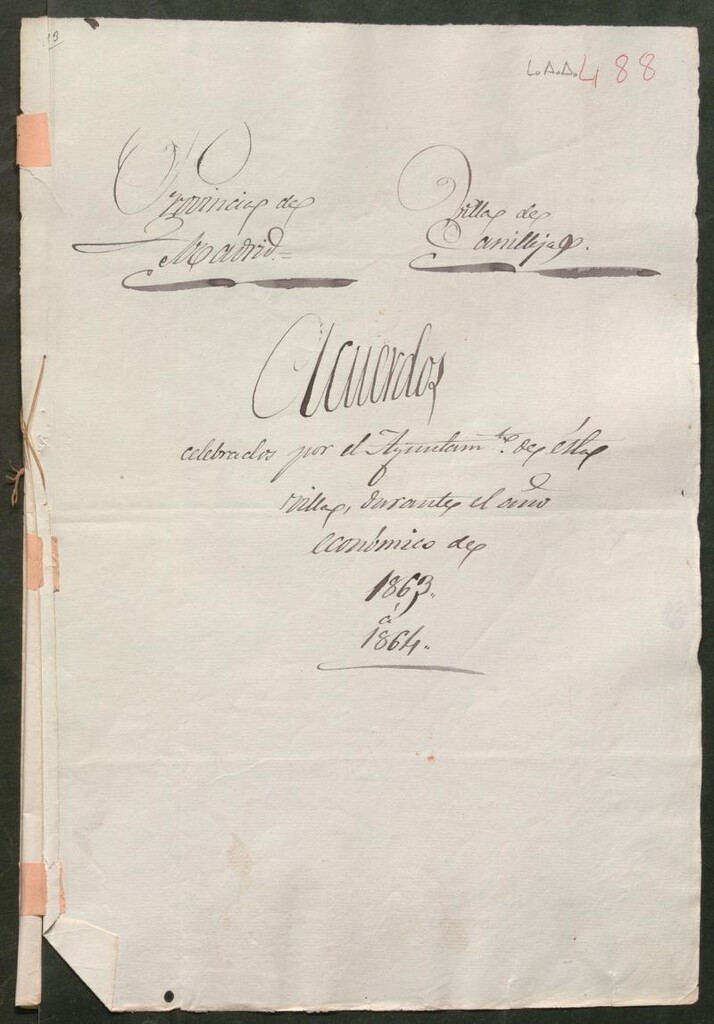 13
L.A.A. 488
Provincia de
Madrid.=
Villa de
Canillejas.
Acuerdos
celebrados por el Ayuntamto. de ésta
villa, durante el año
económico de
1863.
á
1864.